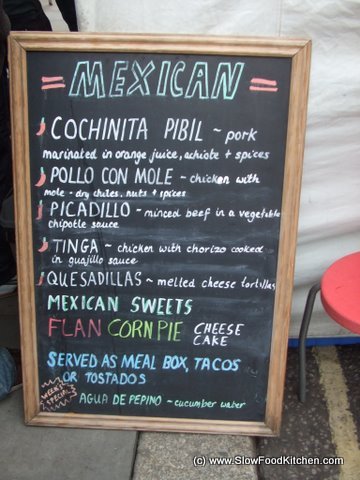 = MEXICAN =
COCHINITA PIBIL ~ pork
marinated in orange juice, achiote + spices
POLLO CON MOLE - chicken with
mole - dry chiles, nuts + spices
PICADILLO - minced beef in a vegetable
chipotle sauce
TINGA ~ chicken with chorizo cooked
in guajillo sauce
QUESADILLAS ~ melted cheese tortillas
MEXICAN SWEETS
FLAN CORN PIE CHEESE
CAKE
SERVED AS MEAL BOX, TACOS
OR TOSTADOS
WEEK'S
SPECIALS
AGUA DE PEPINO ~ cucumber water
(c) www.SlowFoodKitchen.com